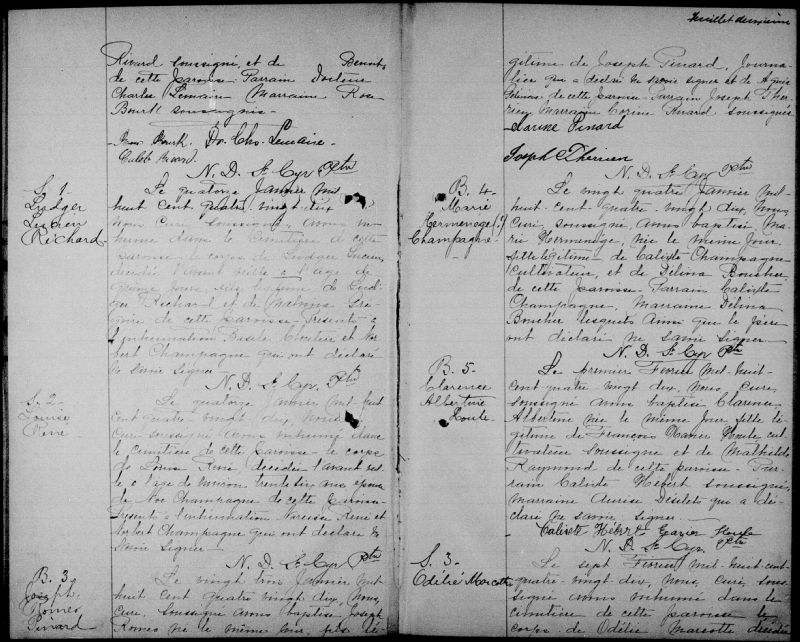 Rivard soussigné, et de Benoit,
de cette paroisse. Parrain Docteur
Charles Lemaire Marraine Rose
Bourk soussignés
Rose Bourk Dr. Chs. Lemaire
Caleb Rivard.
N. D. St Cyr Ptre
S. 1
Ludger
Lucien
Richard
Le quatorze Janvier mil
huit cent quatre vingt dix
Nous Curé soussigné, avons in-
humé dans le Cimetière de cette
paroisse le corps de Ludger Lucien
décédé l'avant veille à l'âge de
quinze jours, fils légitime de Lud-
ger Richard et de
de cette paroisse Présents à
l'inhumation Basile et Nor-
bert Champagne qui ont déclaré
ne savoir signer
N. D. St Cyr, Ptre
S. 2
Louise
René
Le quatorze Janvier mil huit
cent quatre vingt dix, Nous
Curé soussigné avons inhumé dans
le Cimetière de cette paroisse le corps
de Louise René décédée l'avant veil-
le à l'âge de environ trente six ans épouse
de Noé Champagne de cette paroisse
Présents à l'inhumation Narcisse René et
Norbert Champagne qui ont déclaré ne
savoir signer
N. D. St Cyr Ptre
B. 3
Joseph
Romeo
Pinard
Le vingt trois Janvier mil
huit cent quatre vingt dix, Nous,
Curé, soussigné avons baptisé Joseph
Romeo né le même jour, fils lé-
Feuillet deuxième
gitime de Joseph Pinard, Journa-
lier qui a déclaré ne savoir signer et de
de cette paroisse Parrain Joseph Ther-
rien, Marraine Corine Pinard soussignés
Corine Pinard
Joseph Therrien
N. D. St Cyr Ptre
B. 4
Marie
Hermenage (?)
Champagne
Le vingt quatre Janvier mil
huit-cent-quatre-vingt dix, Nous,
Curé, soussigné, avons baptisé, Ma-
rie Hermenage, née le même jour,
fille légitime de Calixte Champagne
Cultivateur, et de Délina Boucher
de cette paroisse Parrain Calixte
Champagne, Marraine Délina
Boucher lesquels Ainsi que le père
ont déclaré ne savoir signer
N. D. St Cyr Ptre
B. 5
Clarence
Albertine
Houle
Le premier Février mil-huit-
cent quatre vingt dix, Nous, Curé,
soussigné avons baptisé Clarence
Albertine née le même jour fille lé-
gitime de François Xavier Houle cul-
tivateur soussigné et de Mathilde
Raymond de cette paroisse - Par-
rain Calixte Hébert soussigné,
Marraine Aurise Désilets qui a dé-
claré ne savoir signer
Calixte Hébert Houle
N. D. St Cyr. Ptre
S. 3
Odélie Marcotte
Le sept Février mil-huit-cent-
quatre-vingt-dix, Nous, Curé, sous-
signé avons inhumé dans le
cimetière de cette paroisse le
corps de Odélie Marcotte décédée